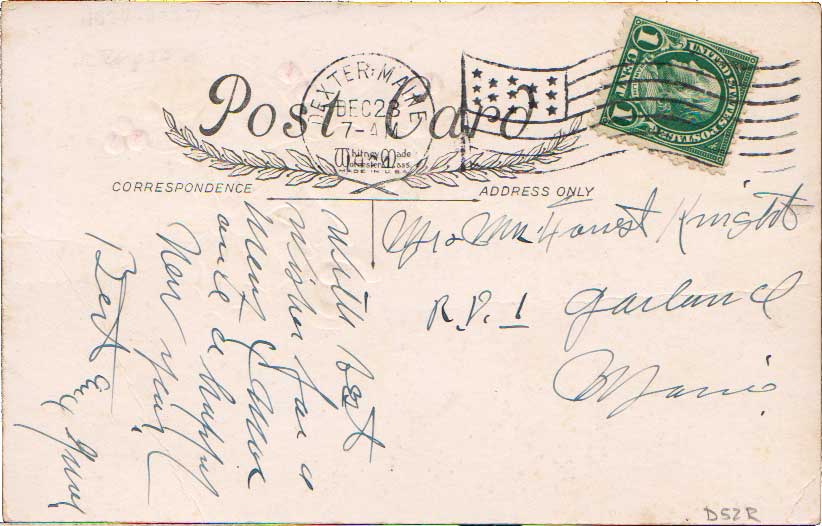 POST CARD
DEXTER. MAINE
DEC 23
7-AM
Whitney Made
Worcester, Mass.
MADE IN U.S.A.
CORRESPONDENCE
ADDRESS ONLY
UNITED STATES POSTAGE
1 CENT 1
With best
wishes for a
Merry Xmas
and a happy
New year
Bert &
Mr Forest Knight
R.D. 1 Garland
Maine
D52R